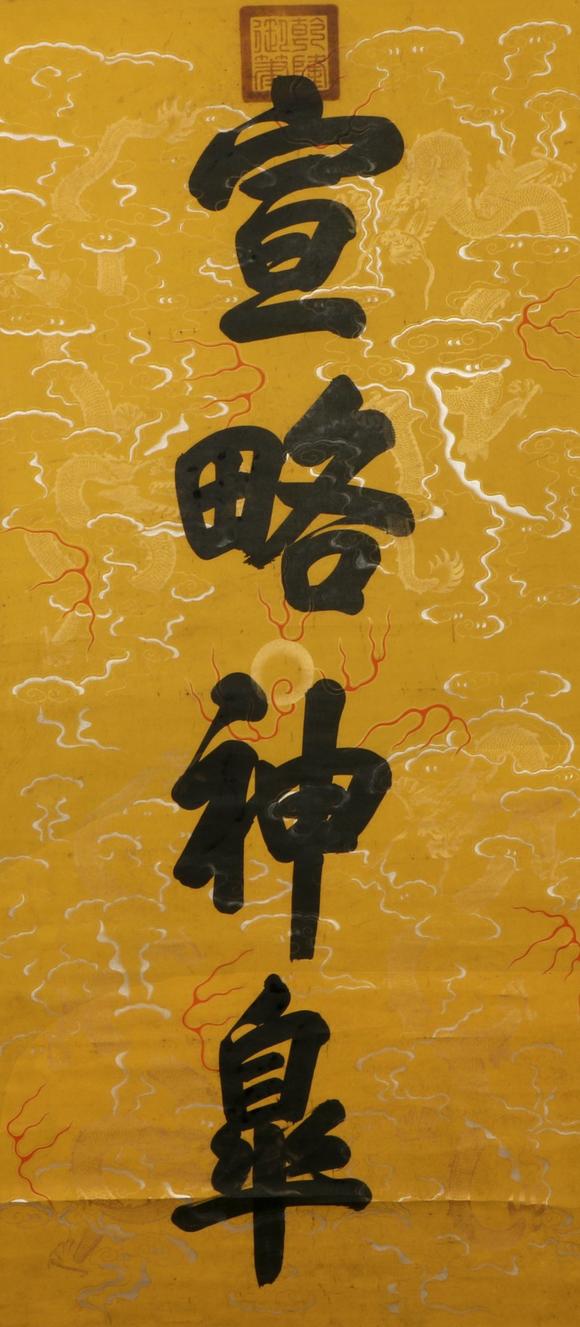 乾隆御筆
宣略神臯